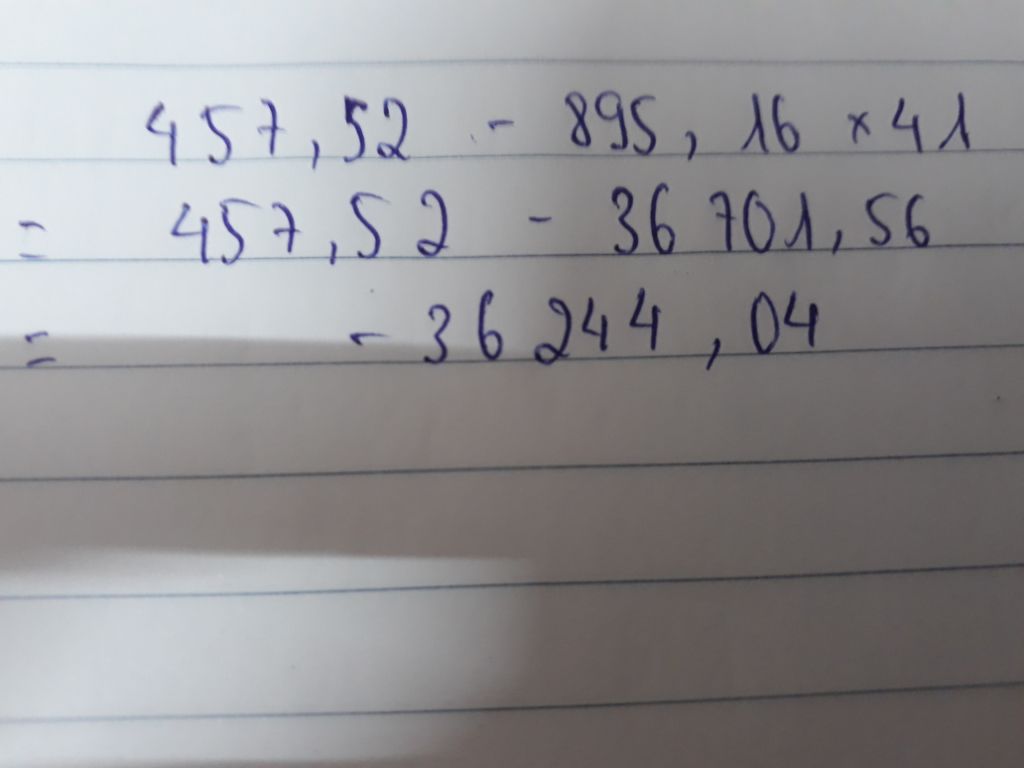 457,52 - 895,16 × 41
= 457,52 - 36 701,56
= - 36 244,04